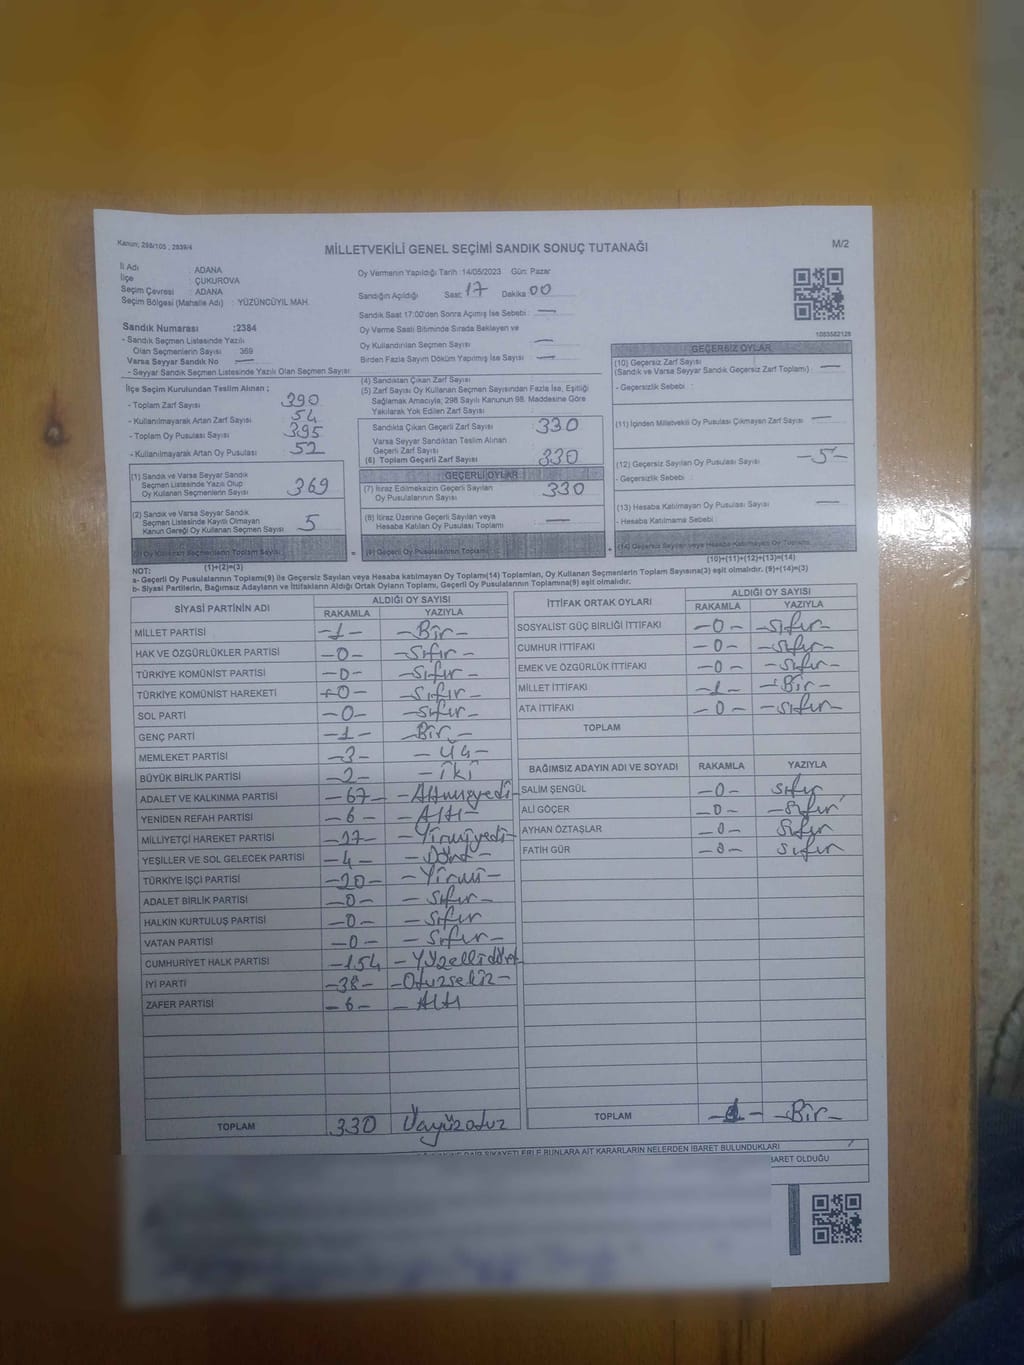 Kanun; 298/105 ; 2839/4
MİLLETVEKİLİ GENEL SEÇİMİ SANDIK SONUÇ TUTANAĞI
M/2
İl Adı : ADANA
İlçe : ÇUKUROVA
Seçim Çevresi : ADANA
Seçim Bölgesi (Mahalle Adı) : YÜZÜNCÜYIL MAH.
Oy Vermenin Yapıldığı Tarih :14/05/2023 Gün: Pazar
Sandığın Açıldığı Saat: 17 Dakika 00
Sandık Saat 17:00'den Sonra Açımış İse Sebebi : —
Oy Verme Saati Bitiminde Sırada Bekleyen ve
Oy Kullandırılan Seçmen Sayısı : —
Birden Fazla Sayım Döküm Yapılmış İse Sayısı : —
1083582128
Sandık Numarası :2384
- Sandık Seçmen Listesinde Yazılı
Olan Seçmenlerin Sayısı 369
Varsa Seyyar Sandık No —
- Seyyar Sandık Seçmen Listesinde Yazılı Olan Seçmen Sayısı
İlçe Seçim Kurulundan Teslim Alınan ;
- Toplam Zarf Sayısı : 390
- Kullanılmayarak Artan Zarf Sayısı : 54
- Toplam Oy Pusulası Sayısı : 395
- Kullanılmayarak Artan Oy Pusulası : 52
(1) Sandık ve Varsa Seyyar Sandık
Seçmen Listesinde Yazılı Olup
Oy Kullanan Seçmenlerin Sayısı : 369
(2) Sandık ve Varsa Seyyar Sandık
Seçmen Listesinde Kayıtlı Olmayan
Kanun Gereği Oy Kullanan Seçmen Sayısı : 5
(3) Oy Kullanan Seçmenlerin Toplam Sayısı
(1)+(2)=(3)
(4) Sandıktan Çıkan Zarf Sayısı :
(5) Zarf Sayısı Oy Kullanan Seçmen Sayısından Fazla İse, Eşitliği
Sağlamak Amacıyla, 298 Sayılı Kanunun 98. Maddesine Göre
Yakılarak Yok Edilen Zarf Sayısı :
Sandıkta Çıkan Geçerli Zarf Sayısı : 330
Varsa Seyyar Sandıktan Teslim Alınan
Geçerli Zarf Sayısı :
(6) Toplam Geçerli Zarf Sayısı : 330
GEÇERLİ OYLAR
(7) İtiraz Edilmeksizin Geçerli Sayılan
Oy Pusulalarının Sayısı : 330
(8) İtiraz Üzerine Geçerli Sayılan veya
Hesaba Katılan Oy Pusulası Toplamı : —
(9) Geçerli Oy Pusulalarının Toplamı
GEÇERSİZ OYLAR
(10) Geçersiz Zarf Sayısı
(Sandık ve Varsa Seyyar Sandık Geçersiz Zarf Toplamı) : —
- Geçersizlik Sebebi :
(11) İçinden Milletvekili Oy Pusulası Çıkmayan Zarf Sayısı : —
(12) Geçersiz Sayılan Oy Pusulası Sayısı : -5-
- Geçersizlik Sebebi :
(13) Hesaba Katılmayan Oy Pusulası Sayısı : —
- Hesaba Katılmama Sebebi :
(14) Geçersiz Sayılan veya Hesaba Katılmayan Oy Toplamı
(10)+(11)+(12)+(13)=(14)
NOT:
a- Geçerli Oy Pusulalarının Toplamı(9) ile Geçersiz Sayılan veya Hesaba katılmayan Oy Toplamı(14) Toplamları, Oy Kullanan Seçmenlerin Toplam Sayısına(3) eşit olmalıdır. (9)+(14)=(3)
b- Siyasi Partilerin, Bağımsız Adayların ve İttifakların Aldığı Ortak Oyların Toplamı, Geçerli Oy Pusulalarının Toplamına(9) eşit olmalıdır.
SİYASİ PARTİNİN ADI ALDIĞI OY SAYISI
RAKAMLA YAZIYLA
MİLLET PARTİSİ -1- -Bir-
HAK VE ÖZGÜRLÜKLER PARTİSİ -0- -Sıfır-
TÜRKİYE KOMÜNİST PARTİSİ -0- -Sıfır-
TÜRKİYE KOMÜNİST HAREKETİ -0- -Sıfır-
SOL PARTİ -0- -Sıfır-
GENÇ PARTİ -1- -Bir-
MEMLEKET PARTİSİ -3- -Üç-
BÜYÜK BİRLİK PARTİSİ -2- -iki
ADALET VE KALKINMA PARTİSİ -67- -Altmışyedi-
YENİDEN REFAH PARTİSİ -6- -Altı-
MİLLİYETÇİ HAREKET PARTİSİ -27- -Yirmiyedi-
YEŞİLLER VE SOL GELECEK PARTİSİ -4- -Dört-
TÜRKİYE İŞÇİ PARTİSİ -20- -Yirmi-
ADALET BİRLİK PARTİSİ -0- -Sıfır-
HALKIN KURTULUŞ PARTİSİ -0- -Sıfır
VATAN PARTİSİ -0- -Sıfır-
CUMHURİYET HALK PARTİSİ -154 -Yüzellidört
İYİ PARTİ -38- -Otuzsekiz-
ZAFER PARTİSİ -6- -Altı
TOPLAM 330 Üçyüzotuz
İTTİFAK ORTAK OYLARI ALDIĞI OY SAYISI
RAKAMLA YAZIYLA
SOSYALİST GÜÇ BİRLİĞİ İTTİFAKI -0- -Sıfır-
CUMHUR İTTİFAKI -0- -Sıfır-
EMEK VE ÖZGÜRLÜK İTTİFAKI -0- -Sıfır-
MİLLET İTTİFAKI -1- -Bir-
ATA İTTİFAKI -0- -Sıfır-
TOPLAM
BAĞIMSIZ ADAYIN ADI VE SOYADI RAKAMLA YAZIYLA
SALİM ŞENGÜL -0- Sıfır
ALİ GÖÇER -0- -Sıfır
AYHAN ÖZTAŞLAR -0- Sıfır
FATİH GÜR -0- Sıfır
TOPLAM -1- -Bir-
BUNLARA AİT KARARLARIN NELERDEN İBARET BULUNDUKLARI
İBARET OLDUĞU